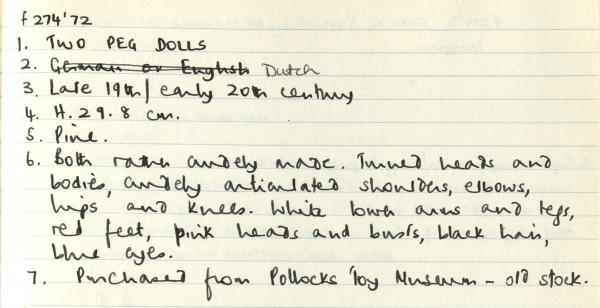 f 274'72
1. TWO PEG DOLLS
2. German or English Dutch
3. Late 19th/early 20th century
4. H. 29.8 cm.
5. Pine.
6. Both rather crudely made. Turned heads and
bodies, crudely articulated shoulders, elbows,
hips and knees. White lower arms and legs,
red feet, pink heads and busts, black hair,
blue eyes.
7. Purchased from Pollocks Toy Museum - old stock.